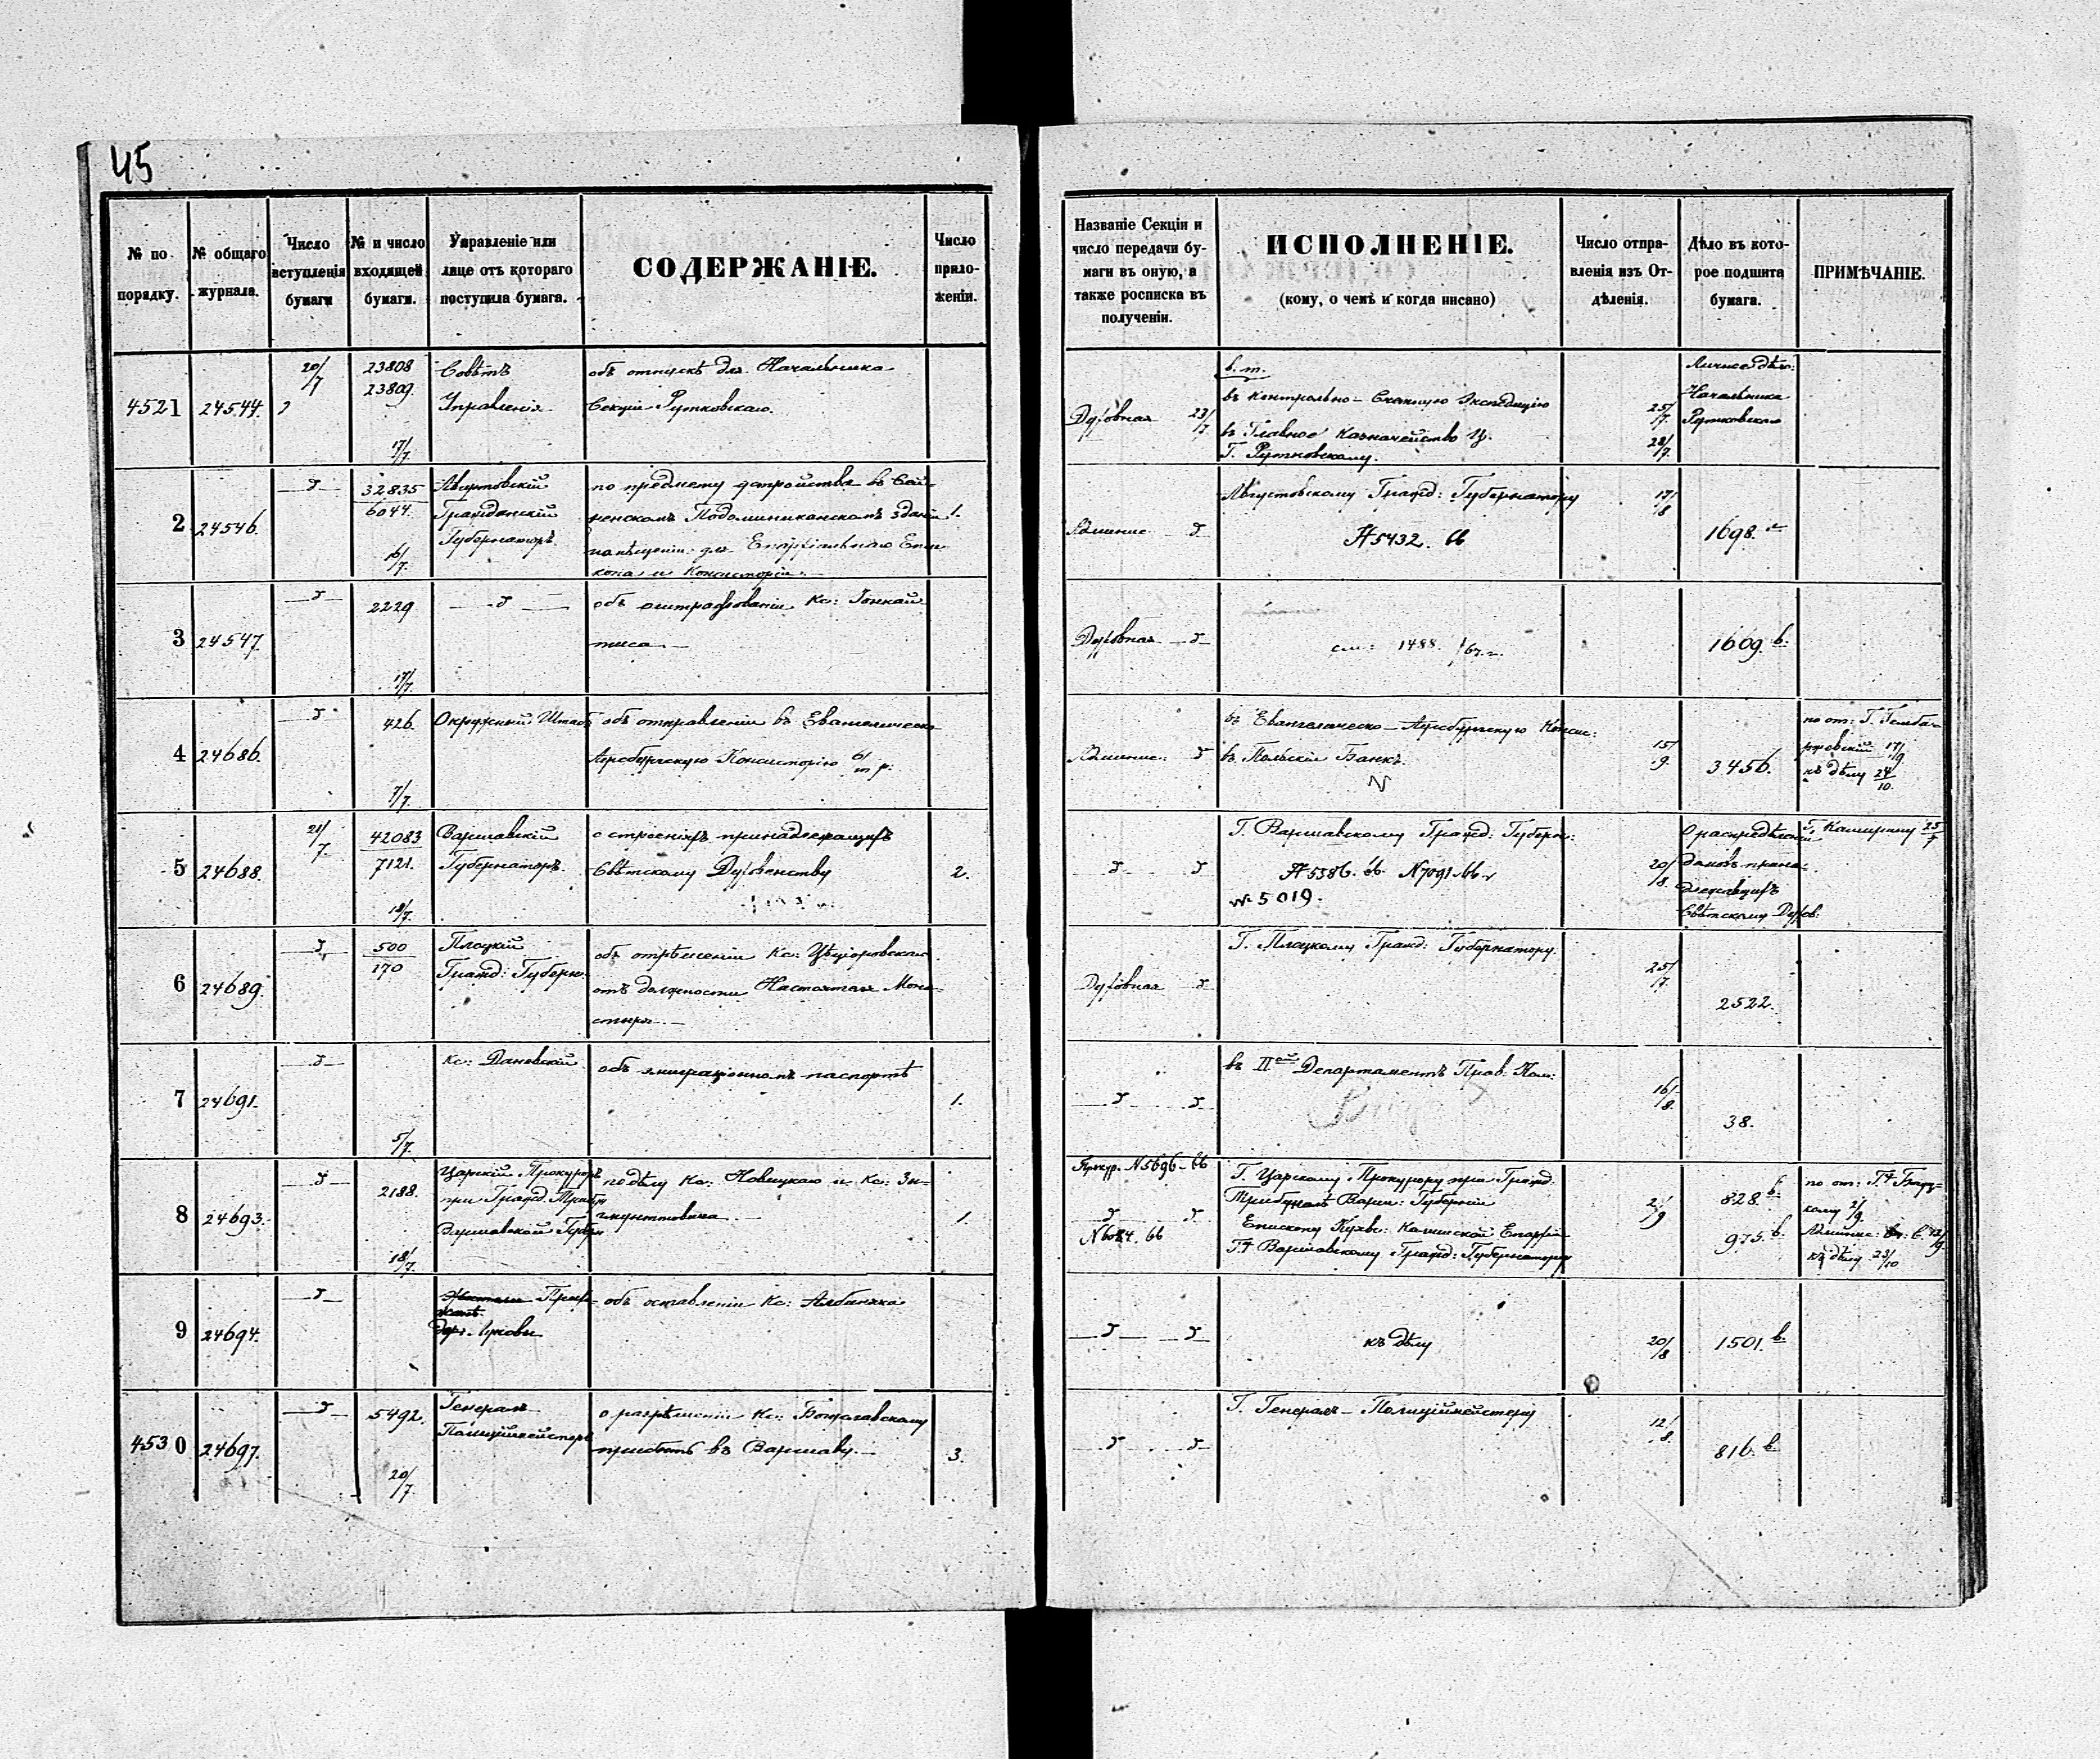 45
№ по порядку.
№ общаго журнала.
Число вступленія бумаги
№ и число входящей бумаги.
Управленіе или лице отъ котораго поступила бумага.
СОДЕРЖАНІЕ.
Число приложеніи.
Названіе Секціи и число передачи бумаги въ оную, а также росписка въ полученіи.
ИСПОЛНЕНІЕ.
(кому, о чемъ и когда писано)
Число отправленія изъ Отдѣленія.
Дѣло въ которое подшита бумага.
ПРИМѢЧАНІЕ.
4521
24544.
20/7
23808
23809.
17/7.
Совѣтъ
Управленія
объ отпускѣ для Начальника
Секціи Рутковскаго.
Духовная 23/7.
въ Контрольно-Счетную Экспедицію
въ Главное Казначейство Ц.
Г. Рутковскому.
25/7.
28/7.
Личное дѣло:
Начальника
Рутковскаго
2
24546.
32835
6044.
16/7.
Гражданскій
Губернаторъ.
по предмету устройства въ Сей-
ненскомъ Подоминиканскомъ зданіи
помѣщеніи для Епархіальнаго Епис-
копа и Консисторіи.
1.
Августовскому Гражд: Губернатору
5432. 66
17/8
1698.
3
24547.
2229
17/7.
объ оштрафованіи Кс: Гонкай-
тиса.
Духовная
см: 1488.
1609. в.
4
24686.
426.
7/7.
Окружный Штабъ
объ отправленіи въ Евангелическо
Аугсбургскую Консисторію
въ Евангелическо-Аугсбургскую Консис:
въ Польскій Банкъ.
15/9.
3456.
по от: Г.
17/9
къ дѣлу 24/10.
5
24688.
21/7.
42083
7121.
18/7.
Варшавскій
Губернаторъ.
о строеніяхъ принадлежащихъ
Свѣтскому Духовенству
2.
Г. Варшавскому Гражд: Губерн:
5386. 66 N7091-66
№ 5019.
20/8.
О распредѣленіи
домовъ прина-
длежащихъ
Свѣтскому Духов:
Г. Каширину 25/7
6
24689.
500
170
Плоцкій
Гражд: Губерн:
объ отрѣшеніи Кс:
отъ должности Настоятеля Мона-
стыря.
Духовная
Г. Плоцкому Гражд: Губернатору.
25/7.
2522.
7
24691.
5/7.
Кс: Дановскій
объ эмиграціонномъ паспортѣ
1.
въ IIой Департаментъ Прав. Ком:
16/8.
38.
8
24693.
2188.
18/7.
Царскій Прокуроръ
при Гражд. Трибун
Варшавской Губерн
по дѣлу Кс: Новицкаго и Кс: Зи-
гмунтовича.
1.
Прокур. N5696-66
N6024. 66
Г. Царскому Прокурору при Гражд:
Трибуналѣ Варш: Губерніи
Епископу Куяво: Калишской Епархіи
Варшавскому Гражд: Губернатору
2/9
828 в.
975. в.
по от:
2/9.
къ дѣлу 23/10
9
24694.
объ оставленіи Кс: Албиняка
къ дѣлу
20/8
1501. в.
4530
24697.
5492.
20/7.
Генералъ
Полиціймейстеръ
о разрѣшеніи Кс:
прибыть въ Варшаву.
3.
Г. Генералъ-Полиціймейстеру
12/8.
816. в